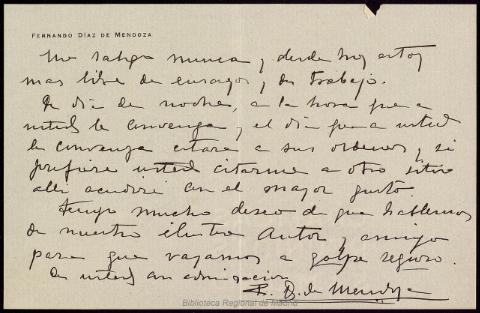 FERNANDO DÍAZ DE MENDOZA
No salgo nunca, y desde hoy estoy
mas libre de ensayos y de trabajo.
De dia de noche, a la hora que a
usted le convenga, y el dia que a usted
le convenga estare a sus ordenes, y si
prefiere usted citarme a otro sitio
alli acudiré con el mayor gusto.
Tengo mucho deseo de que hablemos
de nuestro ilustre Autor y amigo
para que vayamos a golpe seguro.
De usted con admiracion
F. D. de Mendoza
Biblioteca Regional de Madrid